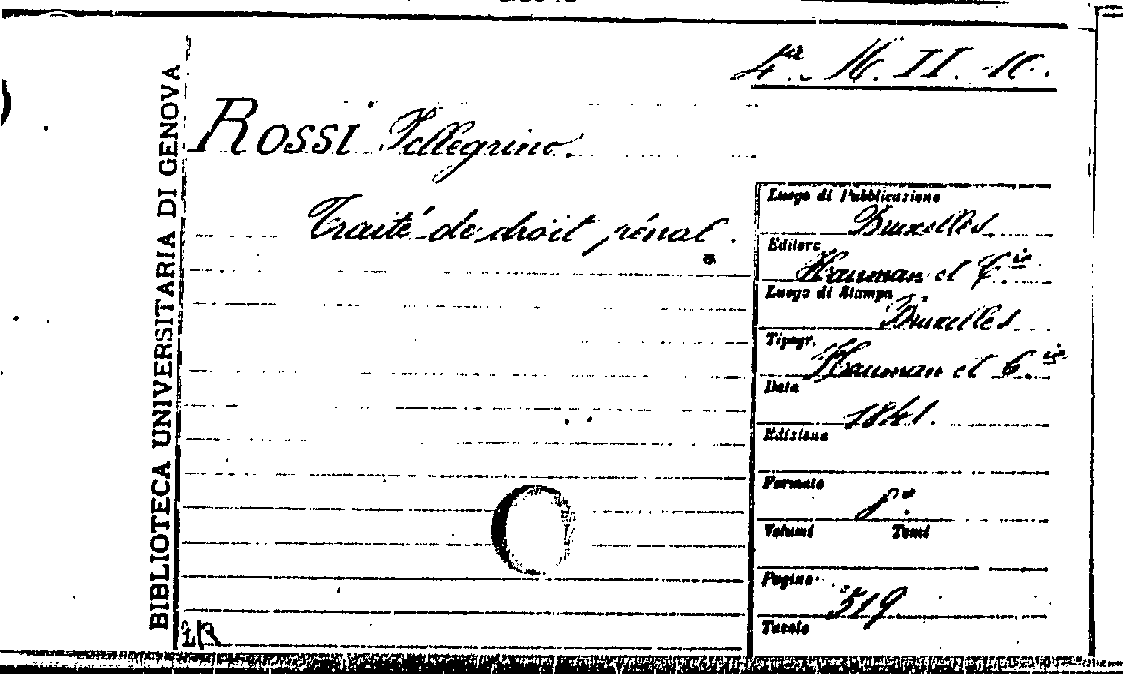 4.ª M. II. 10.
BIBLIOTECA UNIVERSITARIA DI GENOVA
ROSSI Pellegrino.
Traité de droit pénal.
Luogo di Pubblicazione
Bruxelles
Editore
Hauman et C.ie
Luogo di Stampa
Bruxelles
Tipogr.
Hauman et C.ie
Data
1841.
Edizione
Formato
8.º
Volumi Tomi
Pagine
519
Tavole